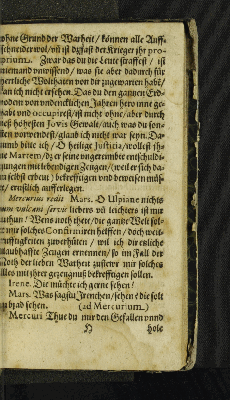 ohne Grund der Warheit / können alle Auff-
schneider wol / vñ ist diß fast der Krieger jhr pro-
prium. Zwar das du die Leute straffest / ist
niemand vnwissend / was sie aber dadurch für
herrliche Wolthaten von dir zugewarten habē /
kan ich nicht ersehen. Das du den gantzen Erd-
bodem von vndencklichen Jahren hero inne ge-
habt vnd occupirest / ist nicht ohne / aber durch
deß höhesten Jovis Gewalt / wie du was du son-
sten vorwendest / glaub ich nicht war seyn. Da-
rumb bitte ich / O heilige Justicia / wollest jh-
me Martem / dz er seine vngereimbte entschuldi-
gungen mit lebendigen Zeugen / (weil er sich da-
zu selbst erbeut) bekrefftigen vnd beweisen müs-
se / ernstlich aufferlegen.
Mercurius redit Mars. O Ulpiane nichts
um vulcani servis liebers vñ leichters ist mir
zuthun / Wens noth thete / die gantze Welt sol-
te mir solches Confirmiren helffen / doch weit-
leufftigkeiten zuverhüten / wil ich dir etsliche
glaubhaffte Zeugen ernennen / so im Fall der
Noth der lieben Warheit zustewr mir solches
alles mit jhrer gezeugnuß bekrefftigen sollen.
Irene. Die möchte ich gerne sehen?
Mars. Was sagstu Irenchen / sehen? die solt
du bald sehen. (ad Mercurium.)
Mercuri Thue du nur den Gefallen vnnd
H hole